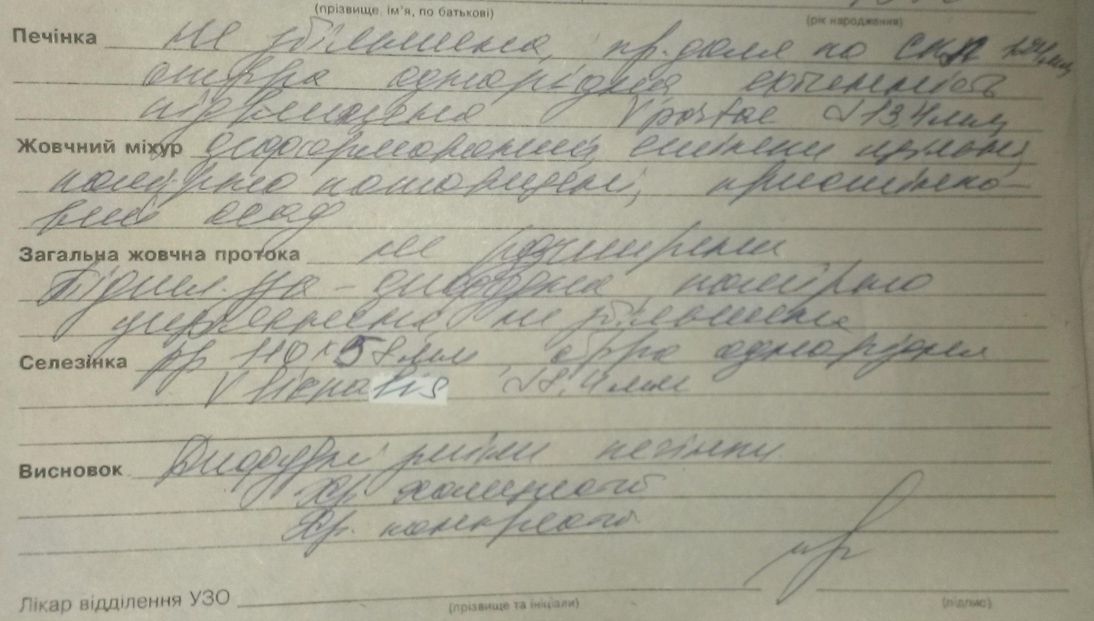 (прізвище, ім'я, по батькові)
(рік народження)
Печінка не збільшена, пр. доля по СКЛ
структура однорідна ехогенність
підвищена V portae d 13,4 мм
Жовчний міхур стінки
помірно потовщені, пристінко-
вий осад
Загальна жовчна протока не розширена
Підшл. з-за - дифузно помірно
ущільнена не збільшена
Селезінка рр 110 x 58 мм стр-ра однорідна
V lienalis d 8,4 мм
Висновок Дифузні зміни печінки
Хр. холецистит
Хр. панкреатит
Лікар відділення УЗО
(прізвище та ініціали)
(підпис)